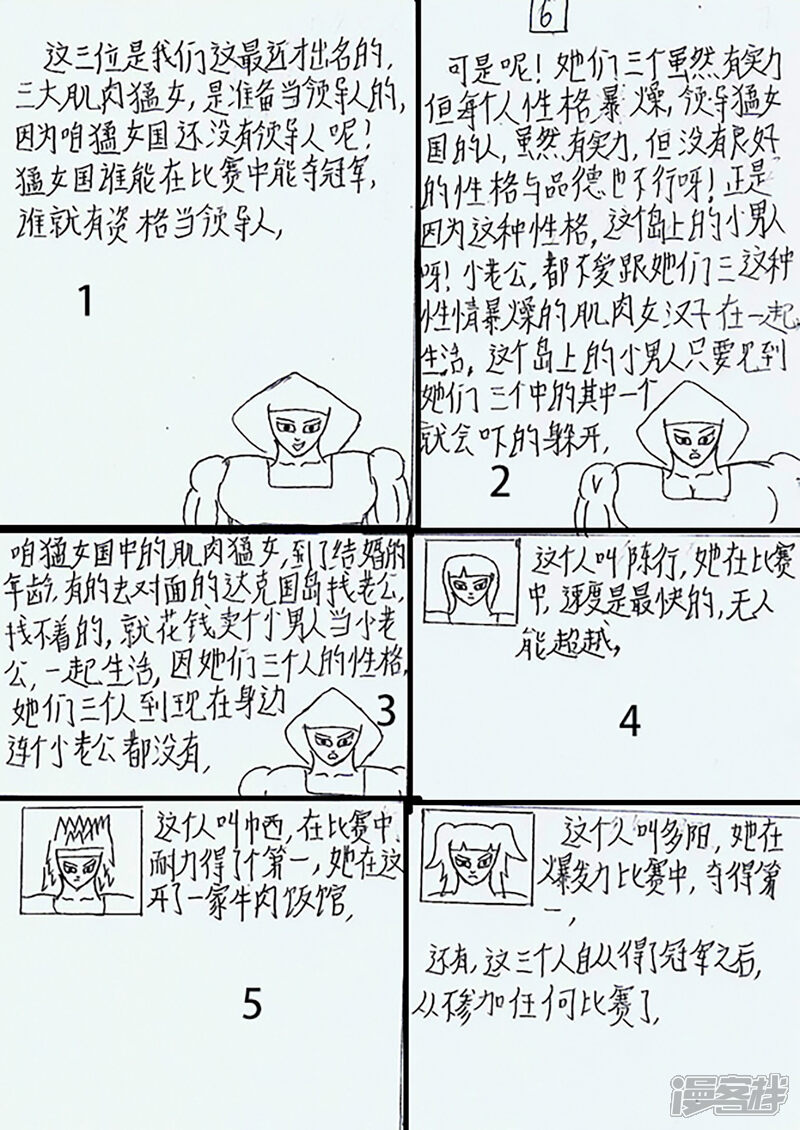 这三位是我们这最近才出名的,
三大肌肉猛女,是准备当领导人的,
因为咱猛女国还没有领导人呢!
猛女国谁能在比赛中能夺冠军,
谁就有资格当领导人,
1
6
可是呢!她们三个虽然有实力
但每个人性格暴燥,领导猛女
国的人,虽然有实力,但没有良好
的性格与品德也不行呀!正是
因为这种性格,这个岛上的小男人
呀!小老公,都不爱跟她们三这种
性情暴燥的肌肉女汉子在一起
生活,这个岛上的小男人只要见到
她们三个中的其中一个
就会吓的躲开,
2
咱猛女国中的肌肉猛女,到了结婚的
年龄,有的去对面的达克国岛找老公,
找不着的,就花钱卖个小男人当小老
公,一起生活,因她们三个人的性格,
她们三个人到现在身边
连个小老公都没有,
3
这个人叫陈行,她在比赛
中,速度是最快的,无人
能超越,
4
这个人叫巾西,在比赛中,
耐力得了个第一,她在这
开了一家牛肉饭馆,
5
这个人叫多阳,她在
爆发力比赛中,夺得第
一,
还有,这三个人自从得了冠军之后,
从不参加任何比赛了,
漫客栈